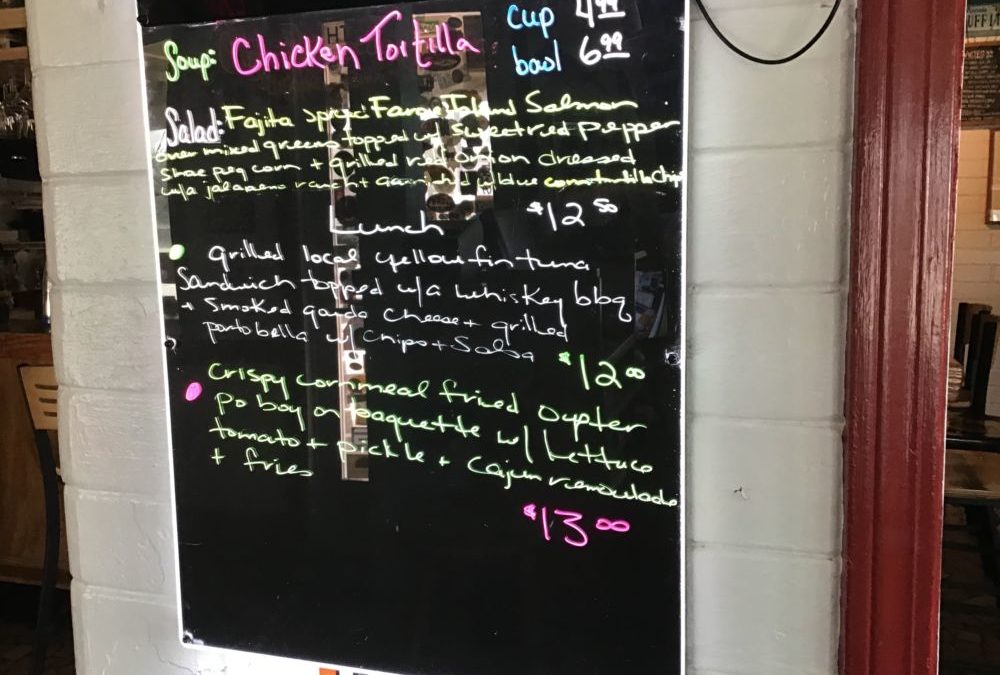 Soup: Chicken Tortilla
cup 4.99
bowl 6.99
Salad: Fajita spiced Faroe Island Salmon
over mixed greens topped w/ sweet red pepper
shoe peg corn + grilled red onion dressed
w/a jalapeno ranch + garnished w/ blue corn tortilla chips
$12.50
Lunch
grilled local yellowfin tuna
Sandwich topped w/a whiskey bbq
+ smoked gouda cheese + grilled
portobella w/ chips + Salsa
$12.00
Crispy cornmeal fried oyster
po boy on baguette w/ lettuce
tomato + pickle + Cajun remoulade
+ fries
$13.00
UFFI